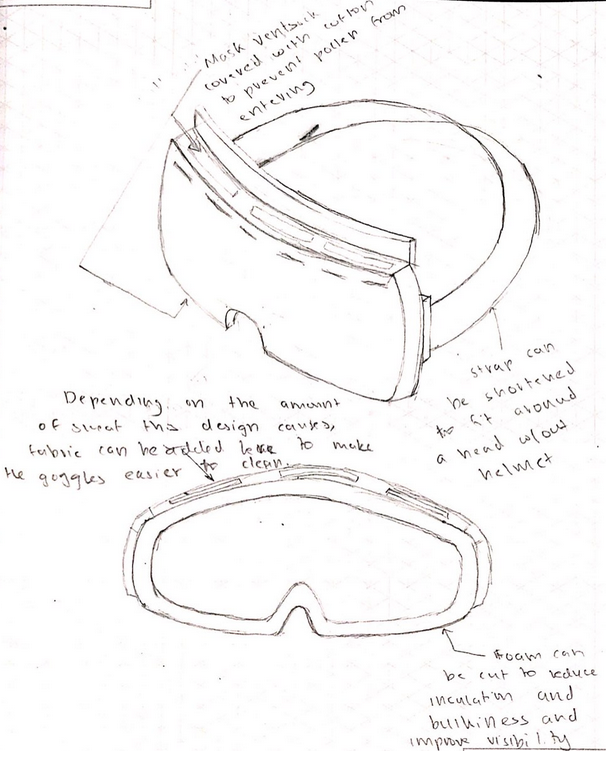 Mask
covered with cotton
to prevent pollen from
entering
strap can
be shortened
to fit around
a head w/out
helmet
Depending on the amount
of sweat this design causes,
fabric can be added here to make
the goggles easier to clean.
Foam can
be cut to reduce
inculation and
bulkiness and
improve visibility